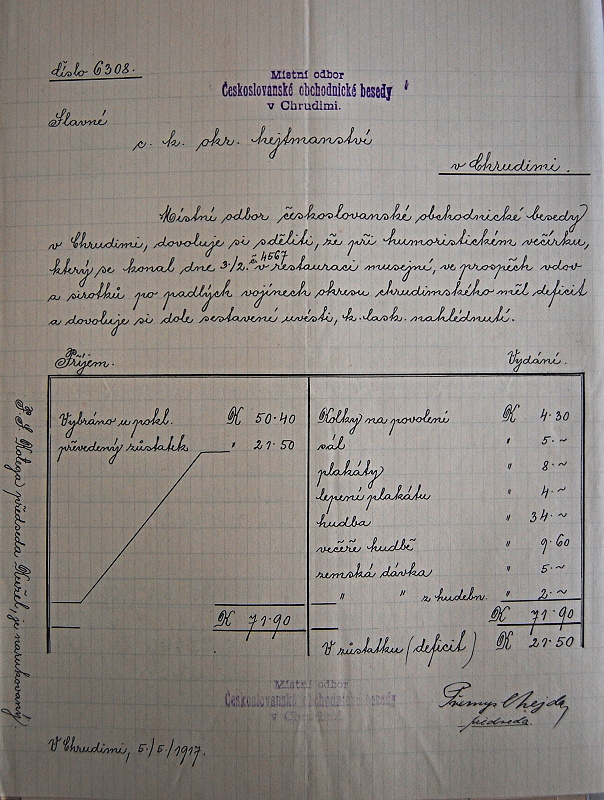 číslo 6308.
Místní odbor
Českoslovanské obchodnické besedy
v Chrudimi.
Slavné
c. k. okr. hejtmanství
v Chrudimi.
Místní odbor českoslovanské obchodnické besedy
v Chrudimi, dovoluje si sděliti, že při humoristickém večírku,
č. 4567
který se konal dne 3./2. v restauraci musejní, ve prospěch vdov
a sirotků po padlých vojínech okresu chrudimského měl deficit
a dovoluje si dole sestavení uvésti, k. lask. nahlédnutí.
Příjem. Vydání.
Vybráno u pokl. K 50·40 Kolky na povolení K 4·30
převedený zůstatek " 21·50 sál " 5·~
plakáty " 8·~
lepení plakátu " 4·~
hudba " 34·~
večeře hudbě " 9·60
zemská dávka " 5·~
" " z hudebn. " 2·~
K 71·90 K 71·90
V zůstatku (deficit) K 21·50
P. S. Kolega předseda Kužel, je narukovaný
Místní odbor
Českoslovanské obchodnické besedy
v Chrudimi
Přemysl Chejda,
předseda.
V Chrudimi, 5./5/1917.